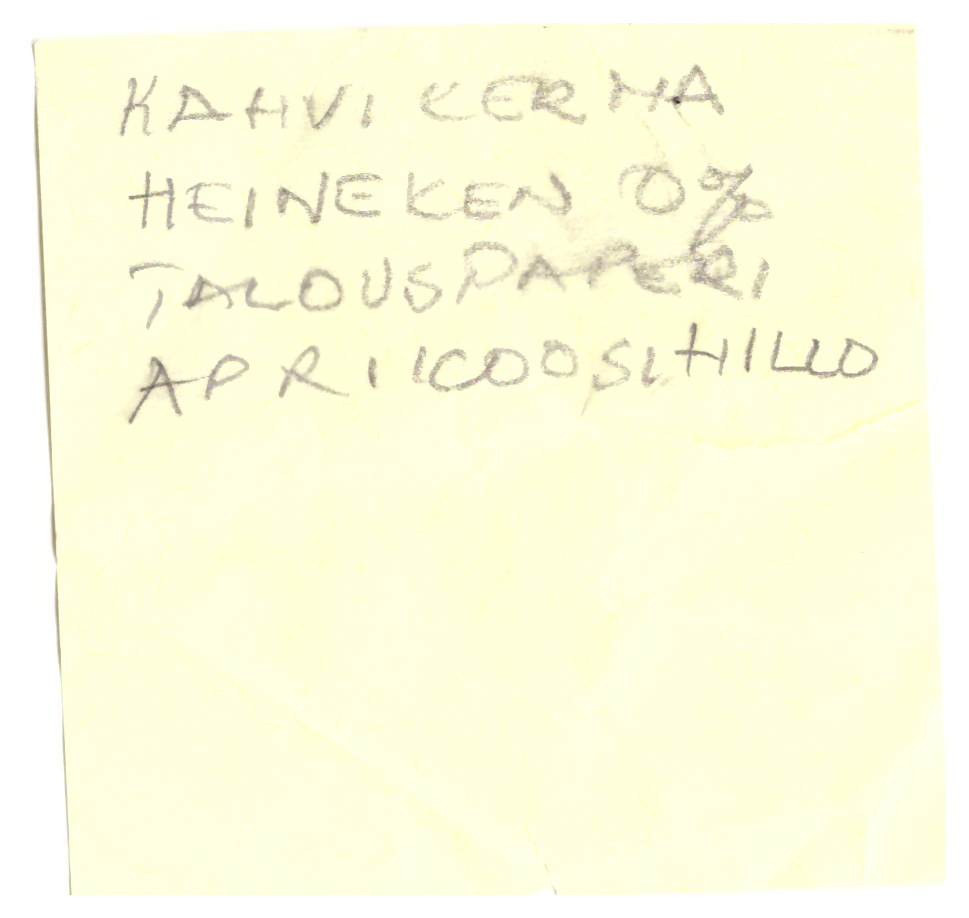 KAHVIKERMA
HEINEKEN 0%
TALOUSPAPERI
APRIKOOSIHILLO